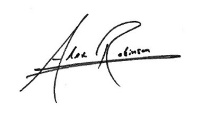 Alex Robinson